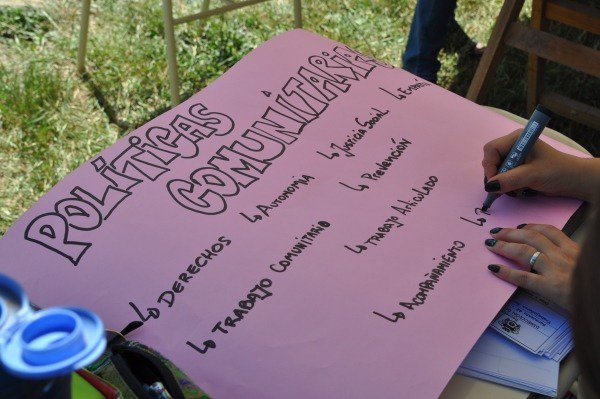 POLÍTICAS
COMUNITARIAS
↳ DERECHOS
↳ AUTONOMIA
↳ JUSTICIA SOCIAL
↳ TRABAJO COMUNITARIO
↳ PREVENCIÓN
↳ TRABAJO ARTICULADO
↳ ACOMPAÑAMIENTO